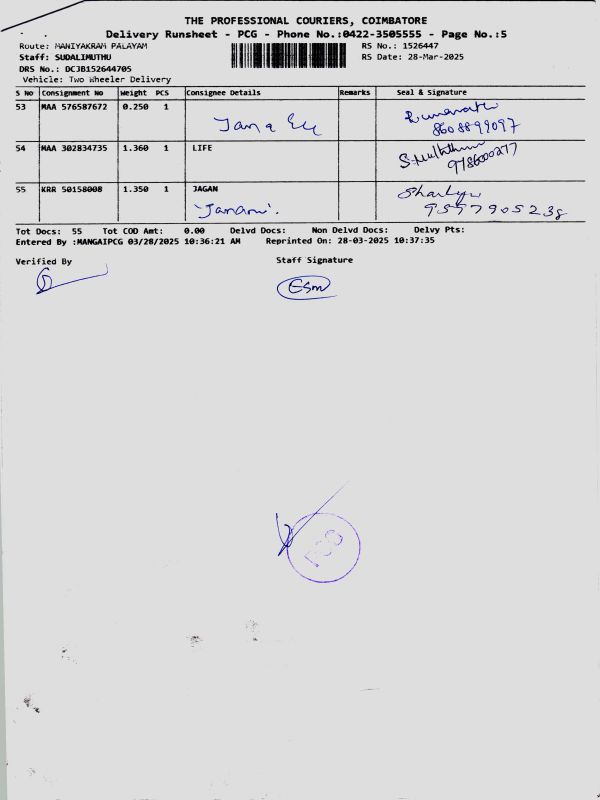 THE PROFESSIONAL COURIERS, COIMBATORE
Delivery Runsheet - PCG - Phone No.:0422-3505555 - Page No.:5
Route: MANIYAKRAM PALAYAM RS No.: 1526447
Staff: SUDALIMUTHU RS Date: 28-Mar-2025
DRS No.: DCJB152644705
Vehicle: Two Wheeler Delivery
S No Consignment No Weight PCS Consignee Details Remarks Seal & Signature
53 MAA 576587672 0.250 1
Jana
8608899097
54 MAA 302834735 1.360 1 LIFE
9786000277
55 KRR 50158008 1.350 1 JAGAN
Janani.
9597905238
Tot Docs: 55 Tot COD Amt: 0.00 Delvd Docs: Non Delvd Docs: Delvy Pts:
Entered By :MANGAIPCG 03/28/2025 10:36:21 AM Reprinted On: 28-03-2025 10:37:35
Verified By Staff Signature
Esm